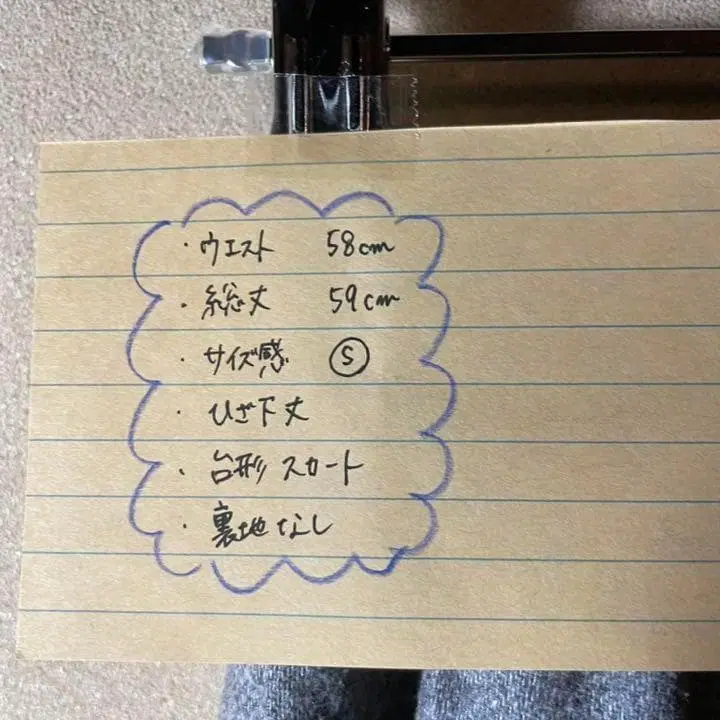 ・ウエスト 58cm
・総丈 59cm
・サイズ感 Ⓢ
・ひざ下丈
・台形スカート
・裏地なし